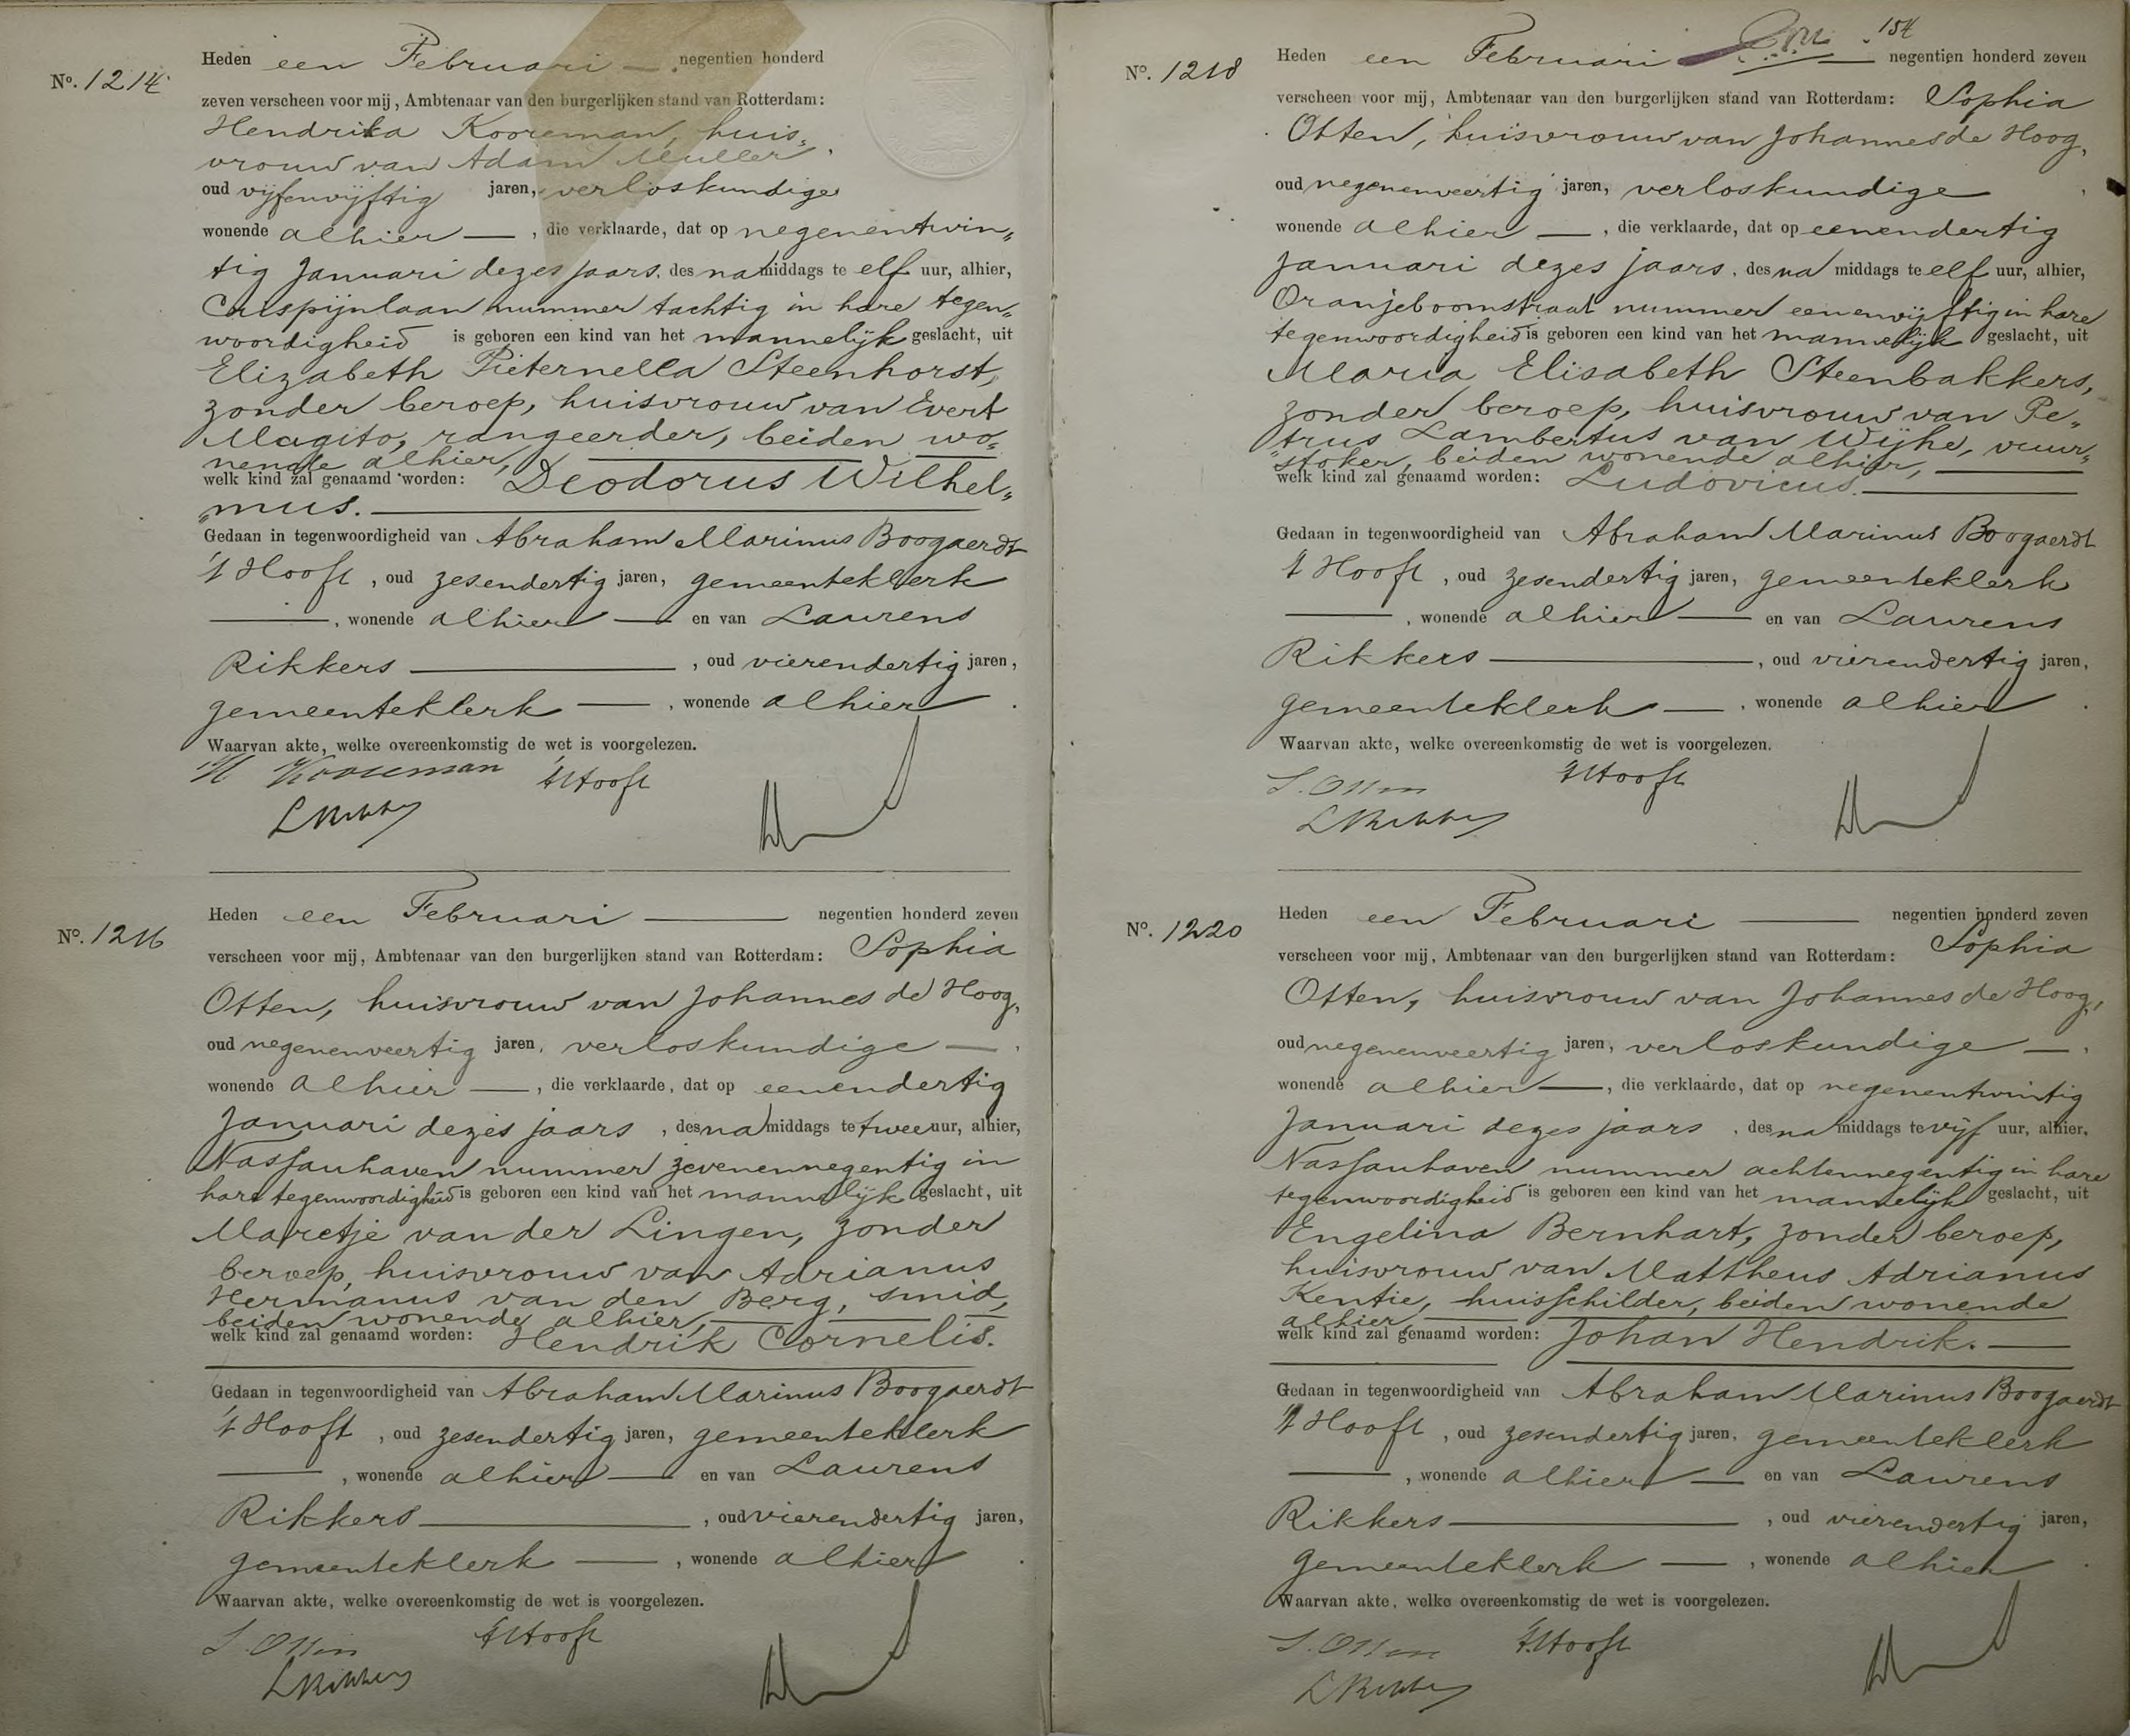 Nº. 1214
Heden een Februari — negentien honderd
zeven verscheen voor mij, Ambtenaar van den burgerlijken stand van Rotterdam:
Hendrika Kooreman, huis„
vrouw van Adam Muller,
oud vijfenvijftig jaren, verloskundige
wonende alhier —, die verklaarde, dat op negenentwin„
tig Januari dezes jaars, des namiddags te elf uur, alhier,
Crispijnlaan nummer tachtig in hare tegen„
woordigheid is geboren een kind van het mannelijk geslacht, uit
Elizabeth Pieternella Steenhorst,
zonder beroep, huisvrouw van Evert
Magito, rangeerder, beiden wo„
nende alhier,
welk kind zal genaamd worden: Deodorus Wilhel„
„mus. —
Gedaan in tegenwoordigheid van Abraham Marinus Boogaerdt
't Hooft, oud zesendertig jaren, gemeenteklerk
—, wonende alhier — en van Laurens
Rikkers —, oud vierendertig jaren,
gemeenteklerk —, wonende alhier.
Waarvan akte, welke overeenkomstig de wet is voorgelezen.
H Kooreman 't Hooft
L Rikkers
Nº. 1216
Heden een Februari — negentien honderd zeven
verscheen voor mij, Ambtenaar van den burgerlijken stand van Rotterdam: Sophia
Otten, huisvrouw van Johannes de Hoog,
oud negenenveertig jaren, verloskundige —,
wonende alhier —, die verklaarde, dat op eenendertig
Januari dezes jaars, des namiddags te twee uur, alhier,
Nassauhaven nummer zevenennegentig in
hare tegenwoordigheid is geboren een kind van het mannelijk geslacht, uit
Maretje van der Lingen, zonder
beroep, huisvrouw van Adrianus
Hermanus van den Berg, smid,
beiden wonende alhier, —
welk kind zal genaamd worden: Hendrik Cornelis.
Gedaan in tegenwoordigheid van Abraham Marinus Boogaerdt
't Hooft, oud zesendertig jaren, gemeenteklerk
—, wonende alhier — en van Laurens
Rikkers —, oud vierendertig jaren,
gemeenteklerk —, wonende alhier.
Waarvan akte, welke overeenkomstig de wet is voorgelezen.
S. Otten 't Hooft
L Rikkers
154
Nº. 1218
Heden een Februari — negentien honderd zeven
verscheen voor mij, Ambtenaar van den burgerlijken stand van Rotterdam: Sophia
Otten, huisvrouw van Johannes de Hoog,
oud negenenveertig jaren, verloskundige,
wonende alhier —, die verklaarde, dat op eenendertig
Januari dezes jaars, des na middags te elf uur, alhier,
Oranjeboomstraat nummer eenenvijftig in hare
tegenwoordigheid is geboren een kind van het mannelijk geslacht, uit
Maria Elisabeth Steenbakkers,
zonder beroep, huisvrouw van Pe„
„trus Lambertus van Wijhe, vuur„
„stoker, beiden wonende alhier, —
welk kind zal genaamd worden: Ludovicus. —
Gedaan in tegenwoordigheid van Abraham Marinus Boogaerdt
't Hooft, oud zesendertig jaren, gemeenteklerk
—, wonende alhier — en van Laurens
Rikkers —, oud vierendertig jaren,
gemeenteklerk —, wonende alhier.
Waarvan akte, welke overeenkomstig de wet is voorgelezen.
S. Otten 't Hooft
L Rikkers
Nº. 1220
Heden een Februari — negentien honderd zeven
verscheen voor mij, Ambtenaar van den burgerlijken stand van Rotterdam: Sophia
Otten, huisvrouw van Johannes de Hoog,
oud negenenveertig jaren, verloskundige —,
wonende alhier —, die verklaarde, dat op negenentwintig
Januari dezes jaars, des na middags te vijf uur, alhier,
Nassauhaven nummer achtennegentig in hare
tegenwoordigheid is geboren een kind van het mannelijk geslacht, uit
Engelina Bernhart, zonder beroep,
huisvrouw van Mattheus Adrianus
Kentie, huisschilder, beiden wonende
alhier, —
welk kind zal genaamd worden: Johan Hendrik. —
Gedaan in tegenwoordigheid van Abraham Marinus Boogaerdt
't Hooft, oud zesendertig jaren, gemeenteklerk
—, wonende alhier — en van Laurens
Rikkers —, oud vierendertig jaren,
gemeenteklerk —, wonende alhier.
Waarvan akte, welke overeenkomstig de wet is voorgelezen.
S. Otten 't Hooft
L Rikkers